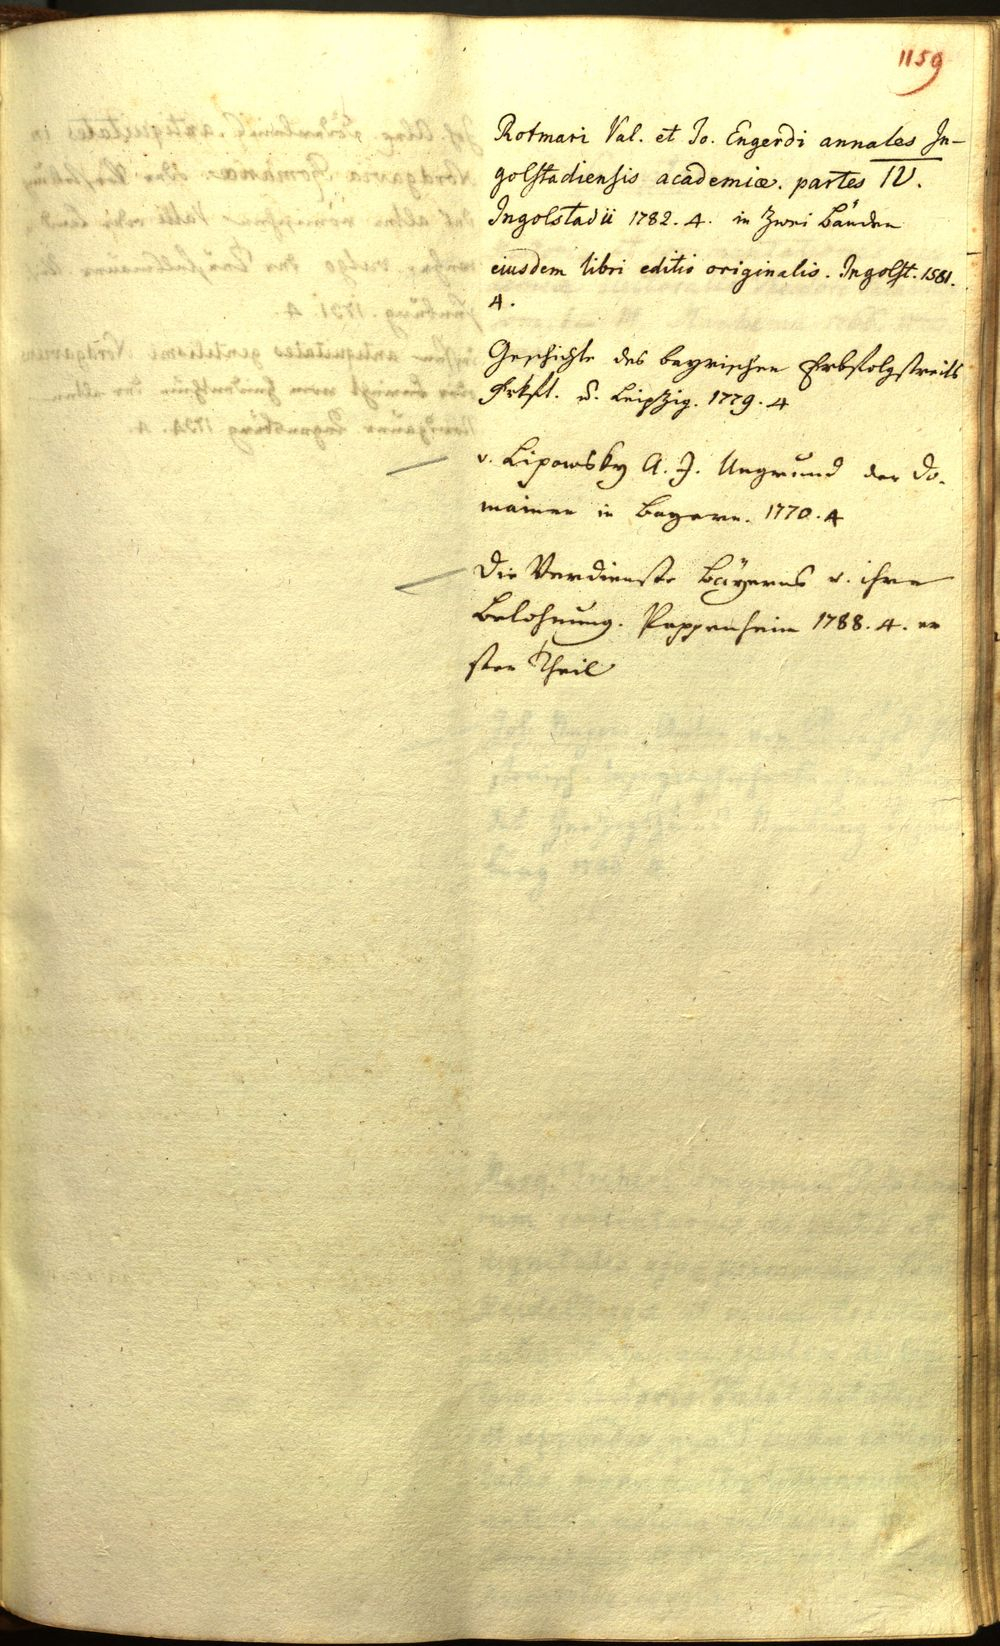 1159
Rotmari Val. et Jo. Engerdi annales In-
golstadiensis academiæ. partes IV.
Ingolstadii 1782. 4. in zwei Bänden
eiusdem libri editio originalis. Ingolst. 1581.
4.
Geschichte des bayrischen Erbfolgstreits
Frkft. u. Leipzig. 1779. 4
v. Lipowsky A. J. Urgrund der Do-
mainen in Bayern. 1770. 4
Die Verdienste Bayerns u. ihre
Belohnung. Pappenheim 1788. 4. er
ster Theil